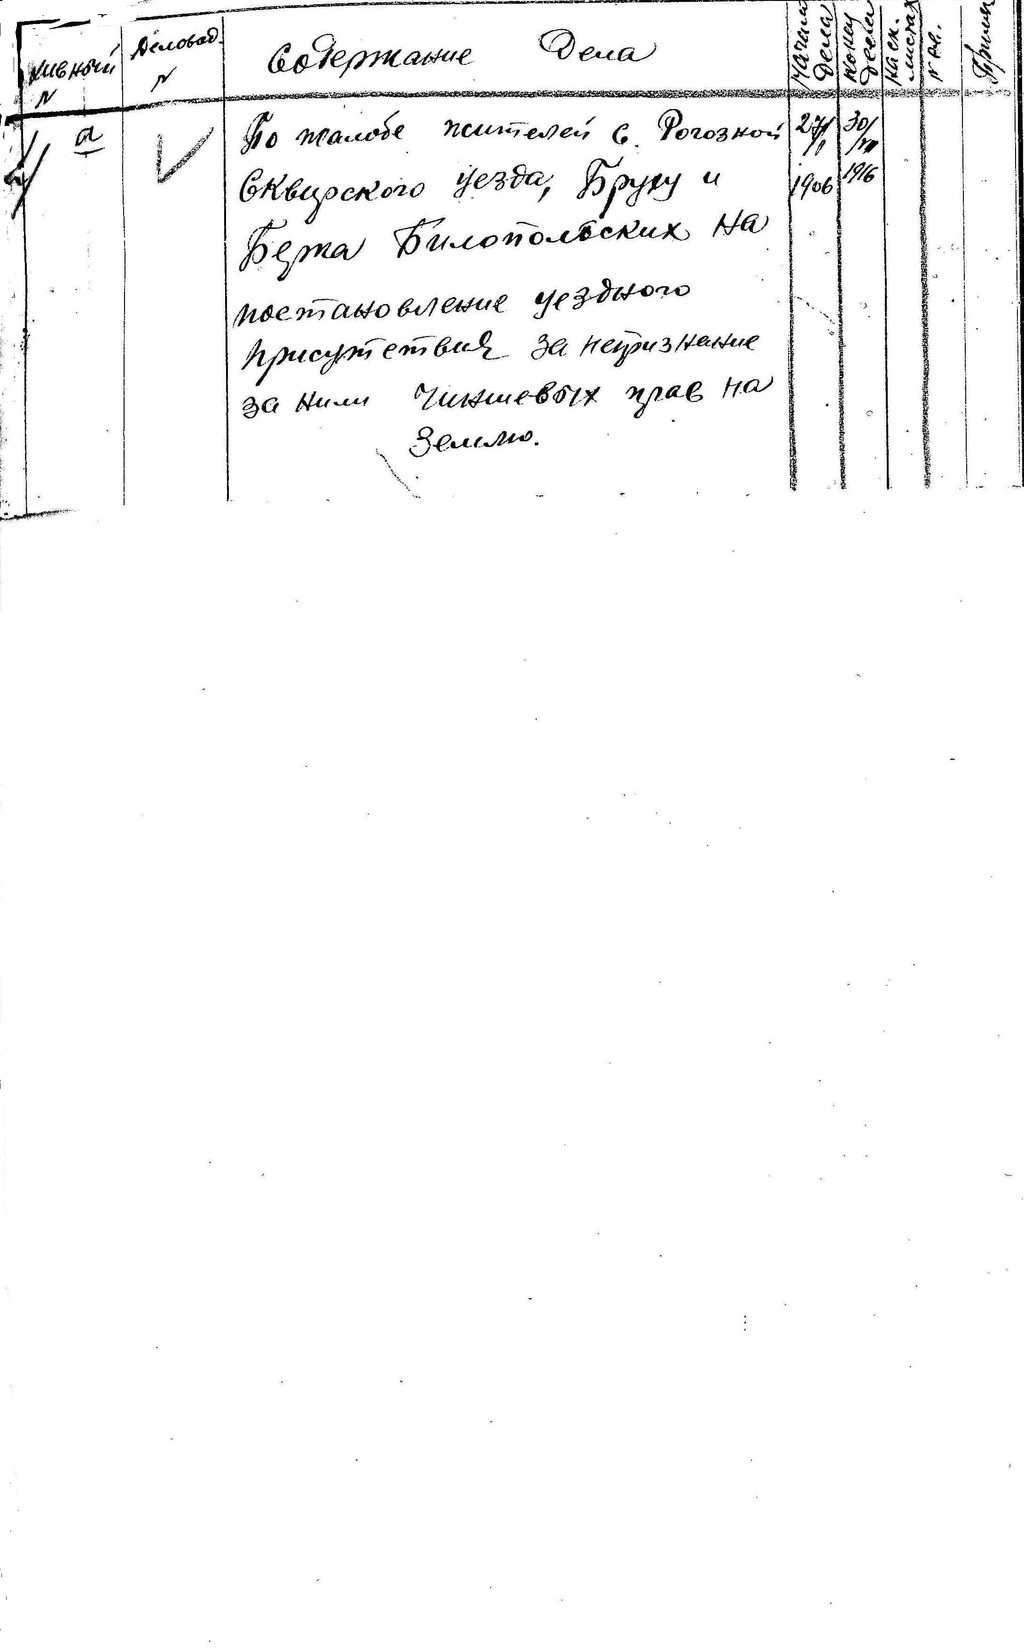 хивный
N
Деловод.
N
Содержание Дела
Начало
Дела
Конец
Дела
На ск.
листах
N ав.
Примеч
а
По жалобе жителей с. Рогозной
Сквирского уезда, Бруху и
Берка Билопольских на
постановление уездного
присутствия за непризнание
за ними Чиншевых прав на
Землю.
27/II
1906
30/VII
1916